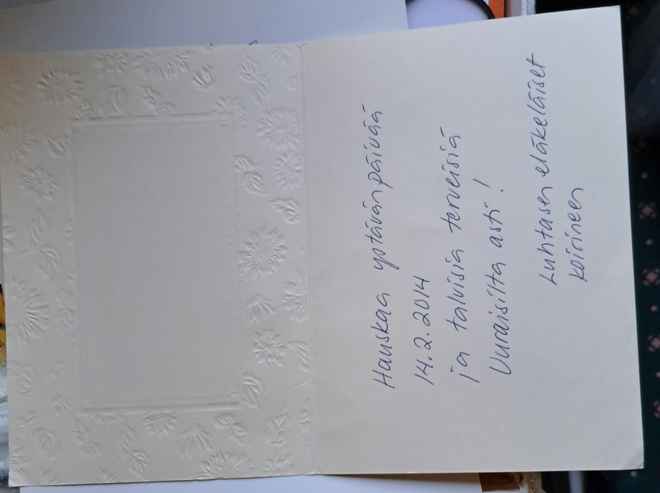 Hauskaa ystävänpäivää
14.2.2014
ja talvisia terveisiä
Uuraisilta asti!
Luhtasen eläkeläiset
koirineen